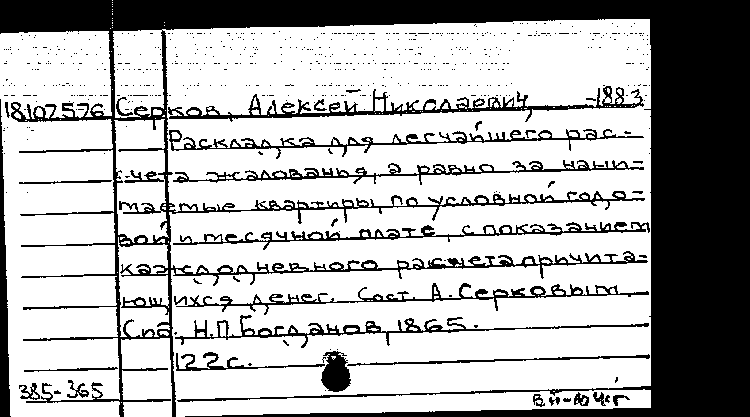 18107576 Серков, Алексей Николаевич, -1883
Раскладка для легчайшего рас-
счета жалованья, а равно за нани-
маемые квартиры, по условной годо-
вой и месячной плате, с показанием
каждодневного расчета причита-
ющихся денег. Сост. А. Серковым.
Спб., Н.П. Богданов, 1865.
122 с.
385-365